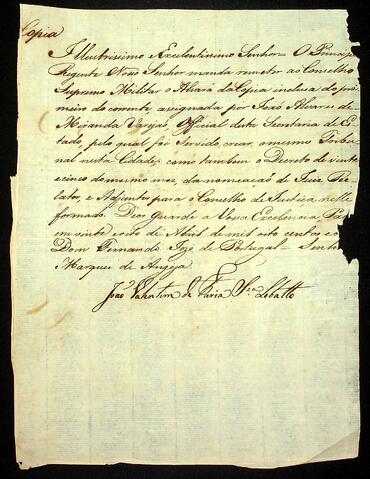 Copia
Illustrissimo Excelentissimo Senhor = O Princip
Regente Nosso Senhor manda remeter ao Concelho
Supremo Militar o Alvará da Copia inclusa do pri
meiro do corrente assignada por João Alvares de
Miranda Varejaõ, Official desta Secretaria de Es
tado, pelo qual foi Servido crear o mesmo Tribu
nal nesta Cidade; como tambem o Decreto de vinte
e cinco do mesmo mez, da nomeacaõ do Juiz Re
lator, e Adjuntos para o Concelho de Justiça nelle
formado. Deos Guarde a Vossa Excelencia Pa
em vinte e oito de Abril de mil oito centos e
Dom Fernando José de Portugal = Senhor
Marquez de Angeja
João Valentim de Faria Sza Lobatto